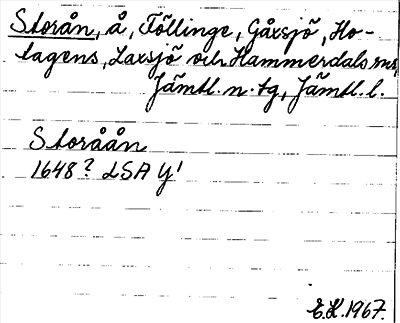 Storån, å, Föllinge, Gåxsjö, Ho-
tagens, Laxsjö och Hammerdals snr,
Jämtl. n. tg, Jämtl. l.
Storåån
1648? LSA Y1
E.K. 1967.